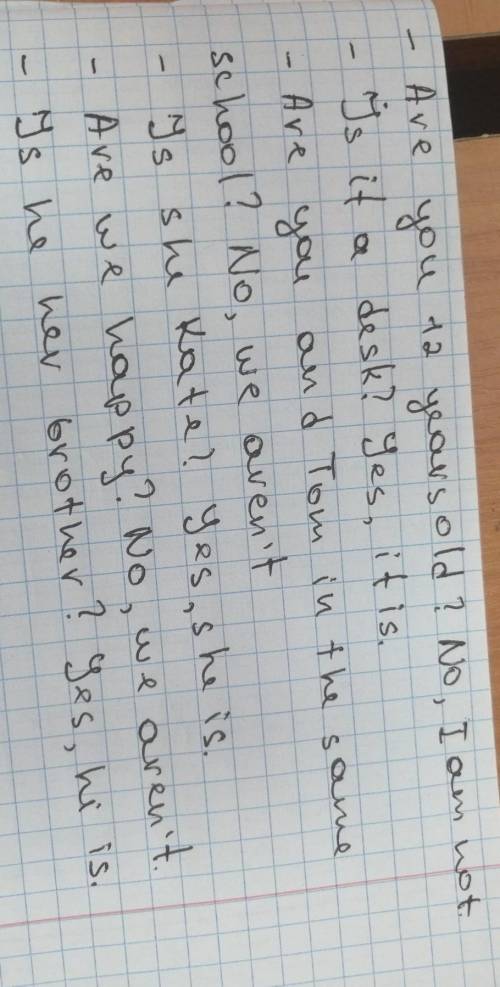 - Are you 12 years old? No, I am not.
- Is it a desk? Yes, it is.
- Are you and Tom in the same
school? No, we aren't
- Is she Kate? Yes, she is.
- Are we happy? No, we aren't.
- Is he her brother? Yes, hi is.